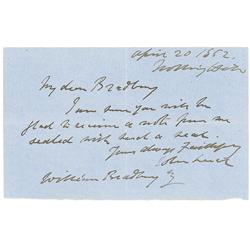 April 20 1852.
Notting Hill
My dear Bradbury
I am sure you will be
glad to receive a note from me
sealed with such a seal.
Yours always Faithfully
William Bradbury Esq